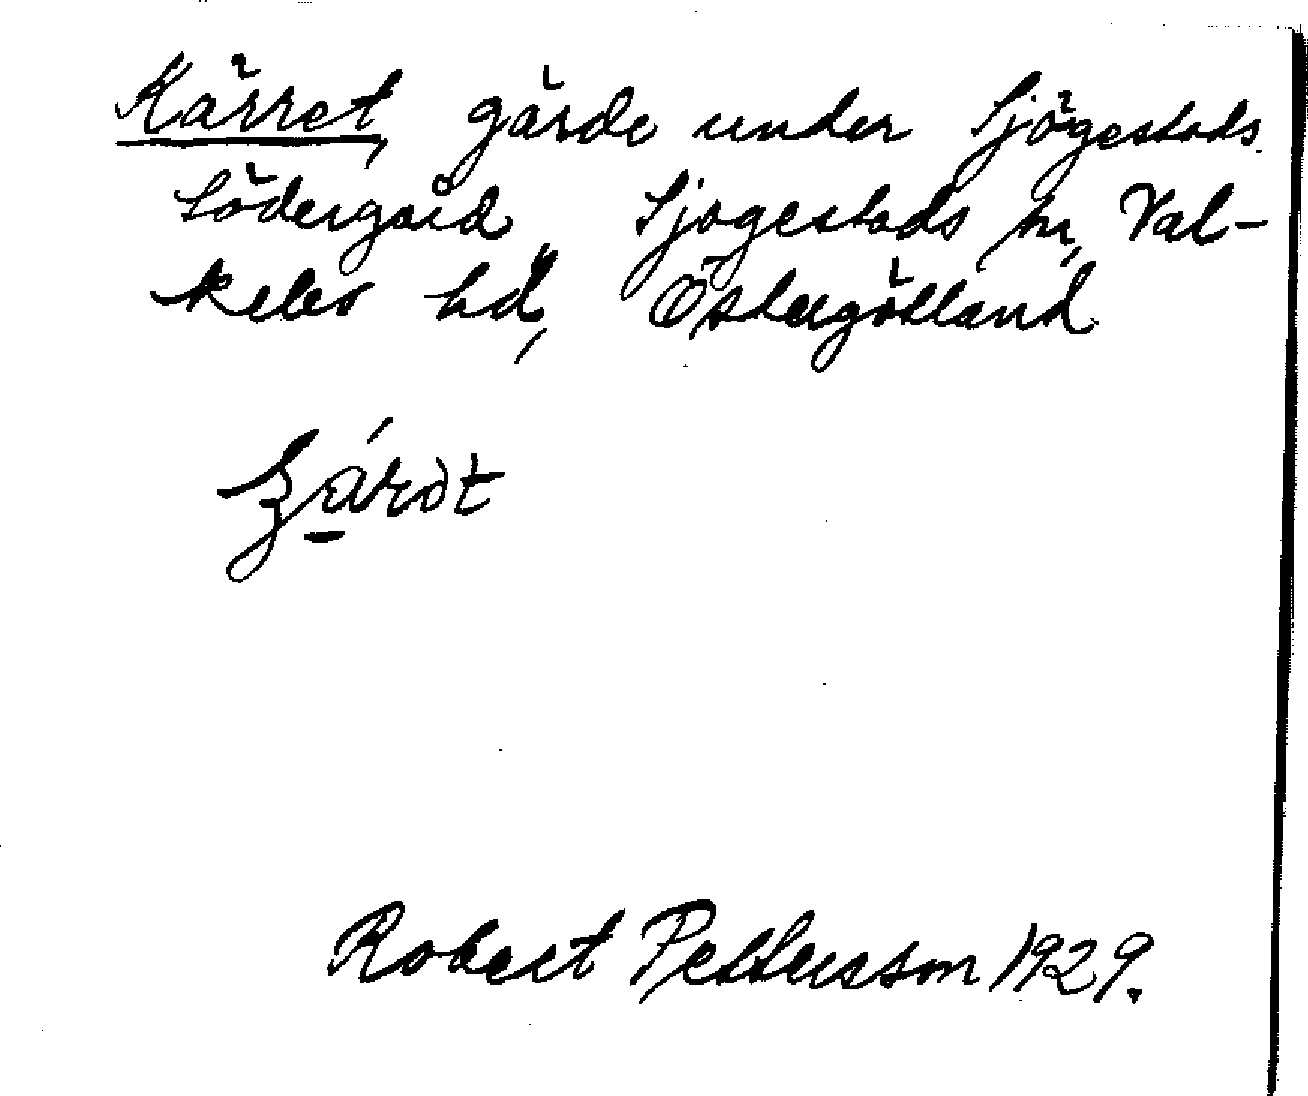 Kärret, gärde under Sjögestads
Södergård, Sjögestads sn, Val-
kebo hd, Östergötland
Robert Pettersson 1929.